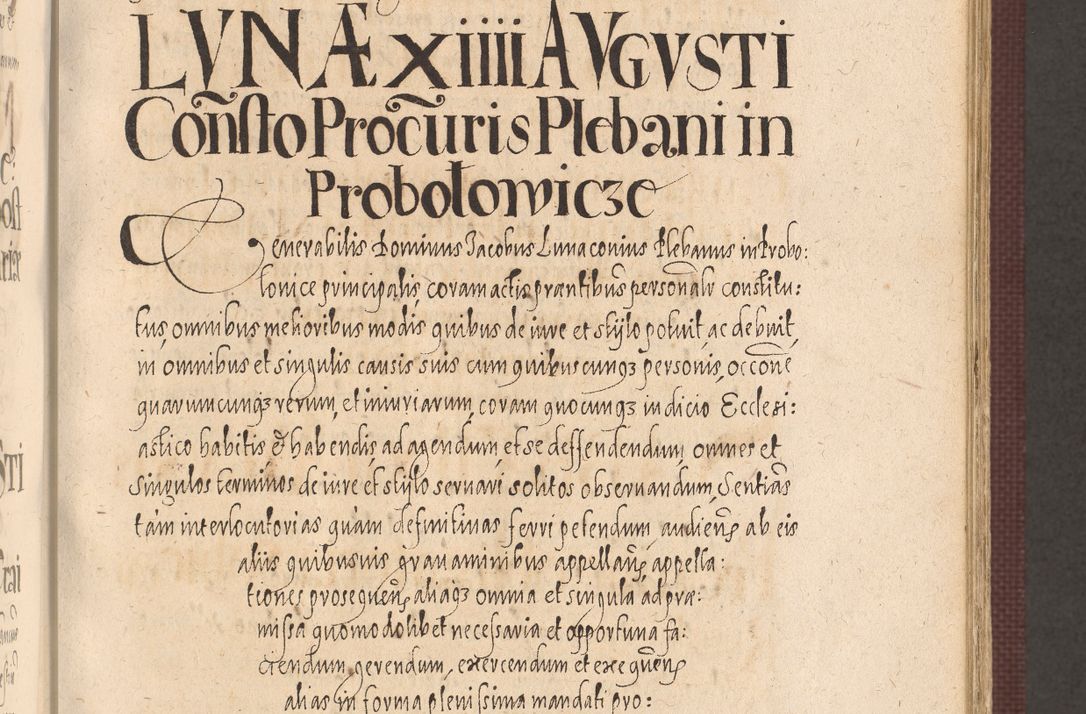 LVNÆ XIIII AVGVSTI
Con̄sto Procu͂ris Plebani in
Probołowicze
Venerabilis Dominus Jacobus Lunaconius Plebanus in Probo:
lowice principalis, coram actis præntibus personal͂r constitu:
tus, omnibus melioribus modis quibus de iure et stylo potuit, ac debuit,
in omnibus et singulis causis suis cum quibuscunqʒ personis, occōne
quarumcunqʒ rerum, et iniuriarum, coram quocunqʒ iudicio Ecclesi:
astico habitis & habendis, ad agendum, et se deffendendum, omnes et
singulos terminos de iure et stylo seruari solitos obseruandum, Sentias
tàm interlocutorias quàm definitiuas ferri petendum, audienꝭ ab eis
aliis quibusuis grauaminibus appellanꝭ, appella:
tiones prosequenꝭ, aliaqʒ omnia et singula ad præ:
missa quomodolibet necessaria et opportuna fa:
ciendum, gerendum, exercendum et exequenꝭ
alias in forma plenissima mandati pro: